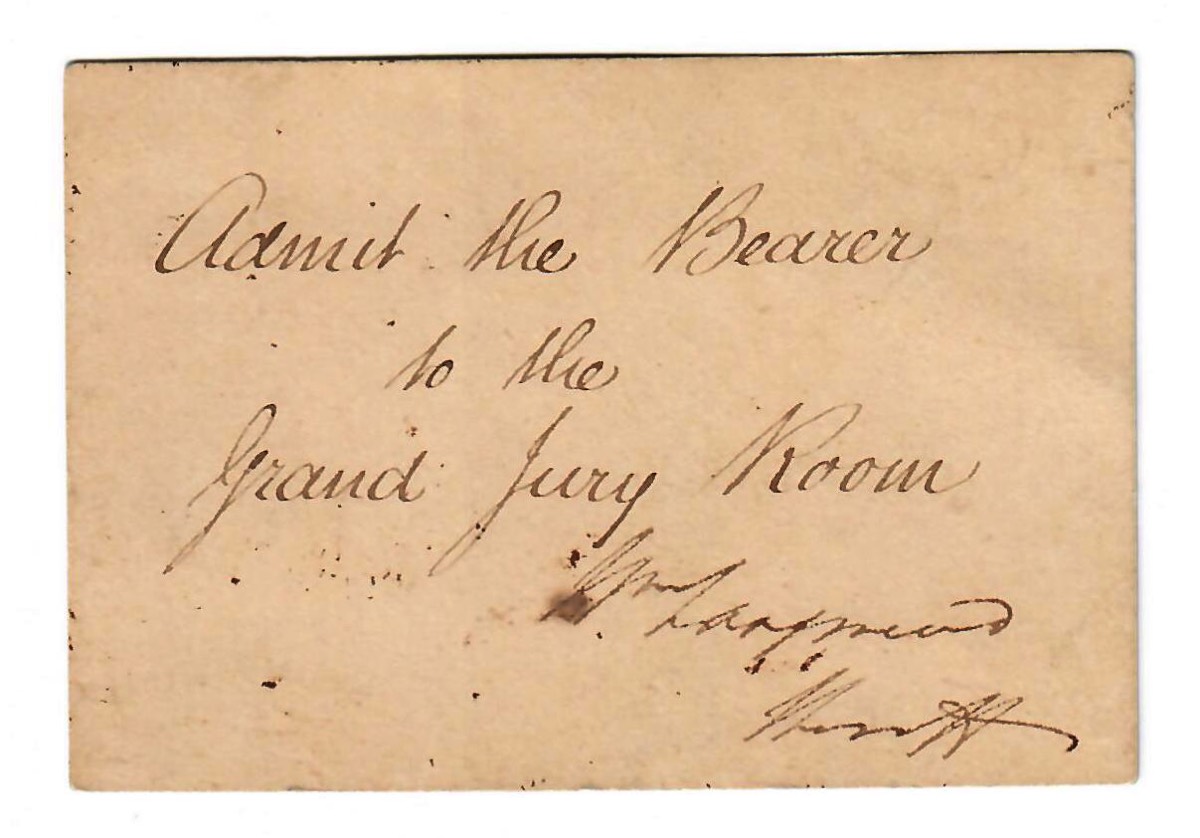 Admit the Bearer
to the
Grand Jury Room
Wm
Sheriff